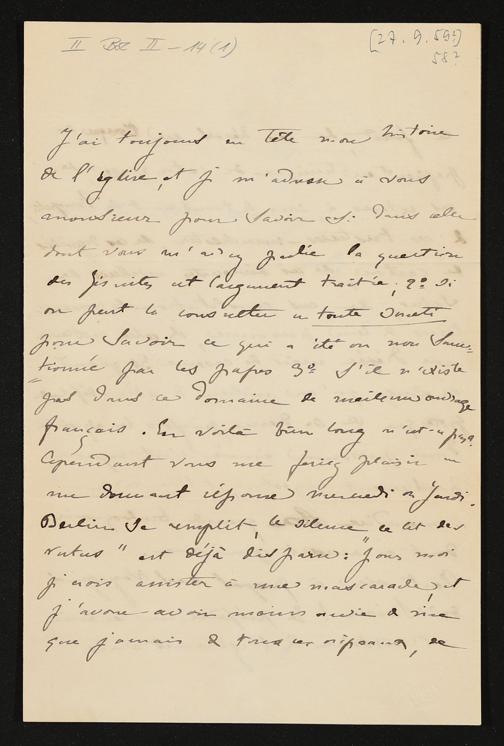 II Bd II - 14 (1)
[27. 9. 59?]
58?
J'ai toujours en tête mon histoire
de l'église, et je m'adresse à vous
monsieur pour savoir si dans celle
dont vous m'avez parlée la question
des Jésuites est largement traitée; 2º si
on peut la consulter en toute sureté
pour savoir ce qui a été ou non sanc-
tionné par les papes 3º s'il n'existe
pas dans ce domaine de meilleur ouvrage
français. En voilà bien long n'est-ce pas?
Cependant vous me feriez plaisir en
me donnant réponse mercredi ou jeudi.
Berlin se remplit, le silence
est déjà disparu: pour moi
je crois assister à une mascarade, et
j'avoue avoir moins envie de rire
que jamais de tous ces oripeaux, de